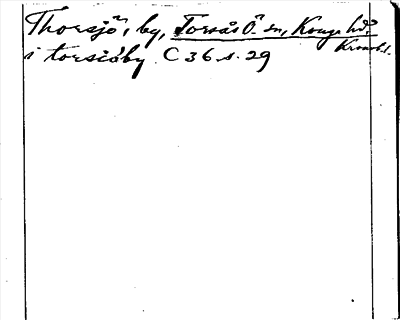 Thorsjö, by, Torsås Ö. sn, Konga hd,
Kronob. l.
i torsiöby C 36 s. 29